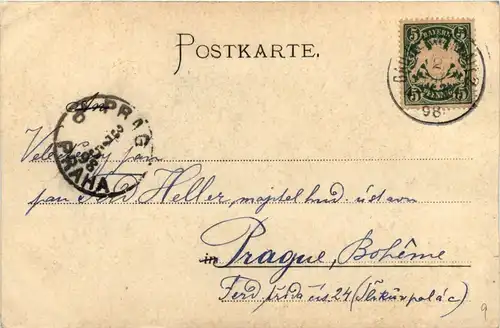 POSTKARTE.
BAYERN
5 5
5 5
98
PRAG
PRAHA
Velectěný pan
pan Ferd Heller, majitel hud. ústavu
in Prague, Bohême
Ferd. třída čís 24
9